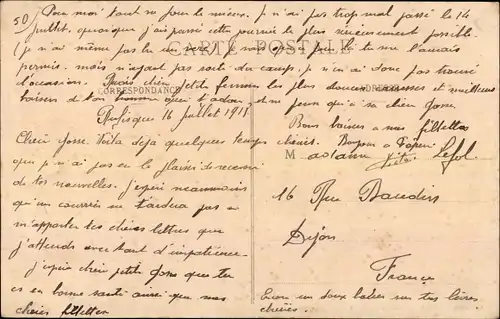 50
Pour moi tout va pour le mieux. Je n'ai pas trop mal passé le 14
juillet, quoique j'ai passé cette journée le plus sérieusement possible.
CARTE POSTALE
permis. mais n'ayant pas sorti du camp, je n'en ai donc pas trouvé
l'occasion.
petite femme les plus douces caresses et meilleurs
CORRESPONDANCE
ADRESSE
baisers de ton homme qui t'adore
16 juillet 1918
Chère Gosse. Voilà déjà quelques temps
que je n'ai pas eu le plaisir de recevoir
de tes nouvelles. J'espère néanmoins
qu'un courrier ne tardera pas à
m'apporter tes chères lettres que
j'attends avec tant d'impatience.
J'espère chère petite Gosse que tu
es en bonne santé ainsi que nos
chères fillettes
Bons baisers à nos fillettes
chéries. Bonjour à
Madame Lefol
16 Rue Baudin
Dijon
France
Encore un doux baiser sur tes lèvres
chéries.